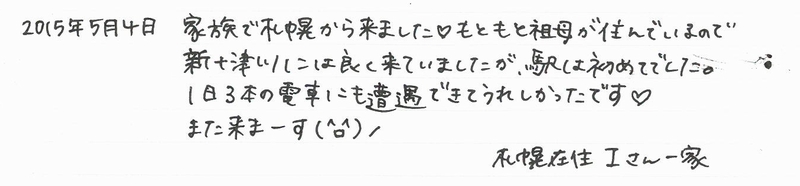 2015年5月4日 家族で札幌から来ました♡もともと祖母が住んでいるので
新十津川には良く来ていましたが、駅は初めてでした。
1日3本の電車にも遭遇できてうれしかったです♡
また来まーす(^o^)ノ
札幌在住 Iさん一家